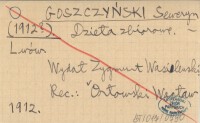 GOSZCZYŃSKI Seweryn
(1912) Dzieła zbiorowe. –
Lwów
Wydał Zygmunt Wasilewski
Rec.: Orłowski Wacław
1912.